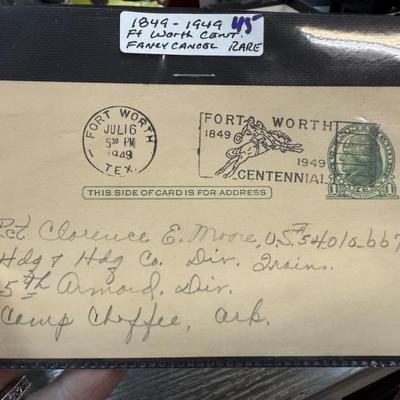 1849-1949 45
Ft Worth Cent.
FANCY CANCEL RARE
FORT WORTH
JUL 16
5 30 PM
1949
TEX.
FORT WORTH
1849
1949
CENTENNIAL
THIS SIDE OF CARD IS FOR ADDRESS
1 1
Pct. Clarence E. Moore, U.S.#54010667
Hdq & Hdq Co. Div. Trains.
5th Armord. Div.
Camp Chaffee, Ark.